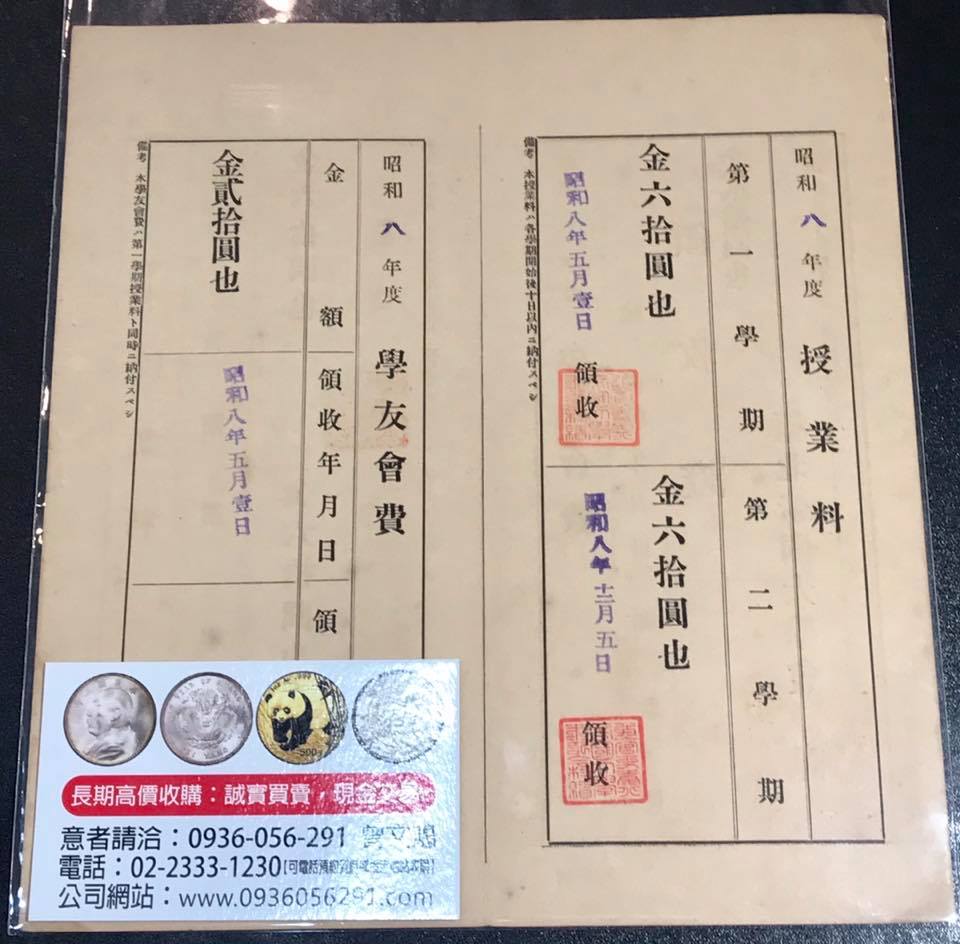 昭和八年度 授業料
第一學期
第二學期
金六拾圓也
昭和八年五月壹日
領收
金六拾圓也
昭和八年十二月五日
領收
備考 本授業料ハ各學期開始後十日以內ニ納付スベシ
昭和八年度 學友會費
金額
領收年月日
領
金貳拾圓也
昭和八年五月壹日
備考 本學友會費ハ第一學期授業料ト同時ニ納付スベシ
長期高價收購：誠實買賣，現金交易
意者請洽：0936-056-291
電話：02-2333-1230
公司網站：www.0936056291.com